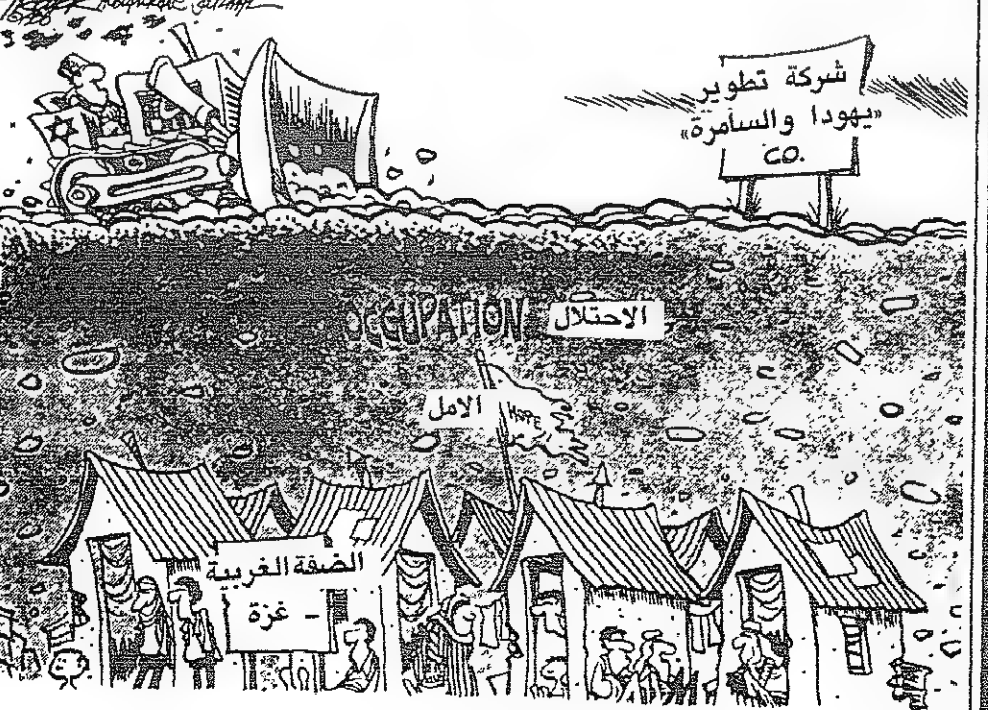 شركة تطوير
«يهودا والسامرة»
CO.
OCCUPATION
الاحتلال
الامل
HOPE
الضفة الغربية
- غزة